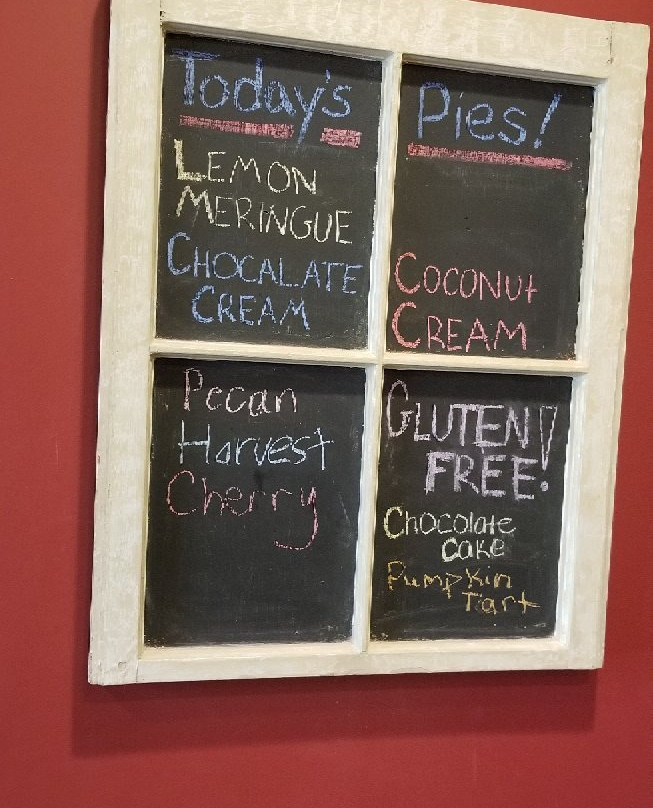 Today's
Pies!
LEMON
MERINGUE
CHOCALATE
CREAM
COCONUt
CREAM
Pecan
Harvest
Cherry
GLUTEN
FREE!
Chocolate
Cake
Pumpkin
Tart